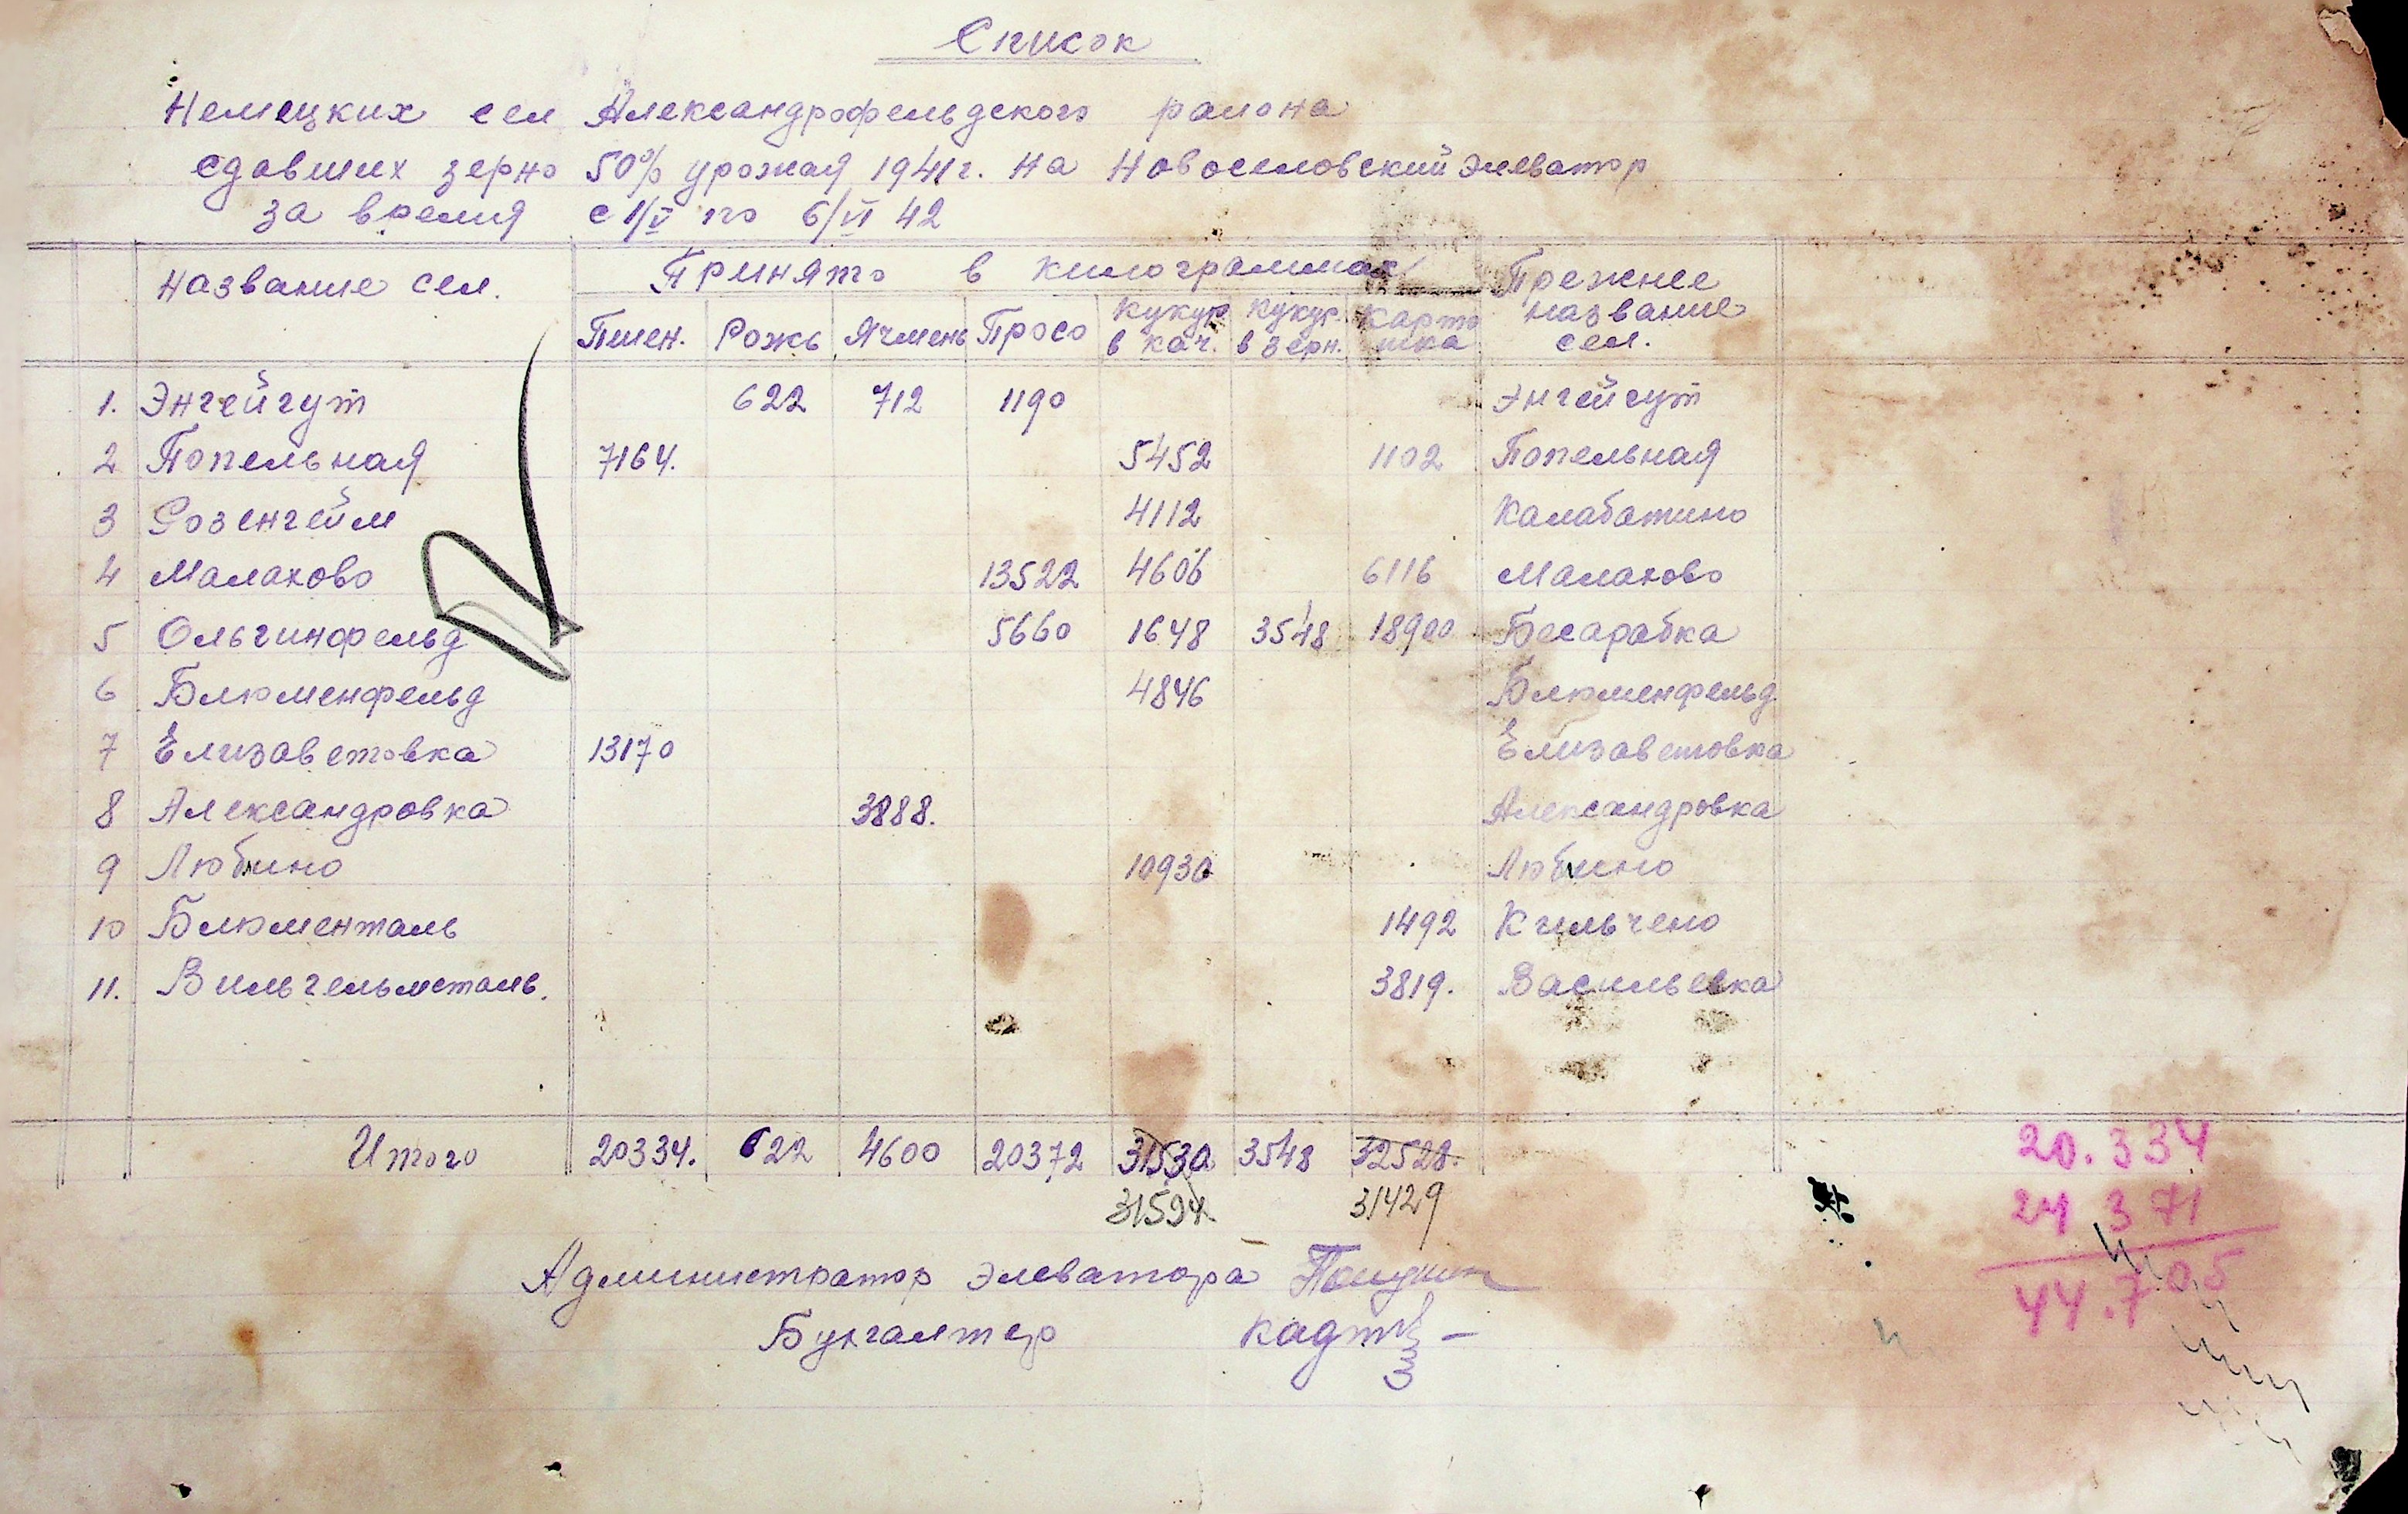 Список
Немецких сел Александрофельдского района
сдавших зерно 50% урожая 1941г. на Новоселовский элеватор
за время с 1/V по 6/VI 42
Название сел. Принято в килограммах Прежнее название сел.
Пшен. Рожь Ячмень Просо Кукур в кач. Кукур. в зерн. Карто шка
1. Энгейгут 622 712 1190 Энгейгут
2 Попельная 7164. 5452 1102 Попельная
3 Розенгейм 4112 Калабатино
4 Малахово 13522 4606 6116 Малахово
5 Ольгинфельд 5660 1648 3548 18900 Бесарабка
6 Блюменфельд 4846 Блюменфельд
7 Елизаветовка 13170 Елизаветовка
8 Александровка 3888. Александровка
9 Любино 10930 Любино
10 Блюменталь 1492 Кгильчено
11. Вильгельмсталь. 3819. Васильевка
Итого 20334. 622 4600 20372 31530 3548 32528.
31594 31429
Администратор элеватора
Бухгалтер
20.334
24 371
44.705